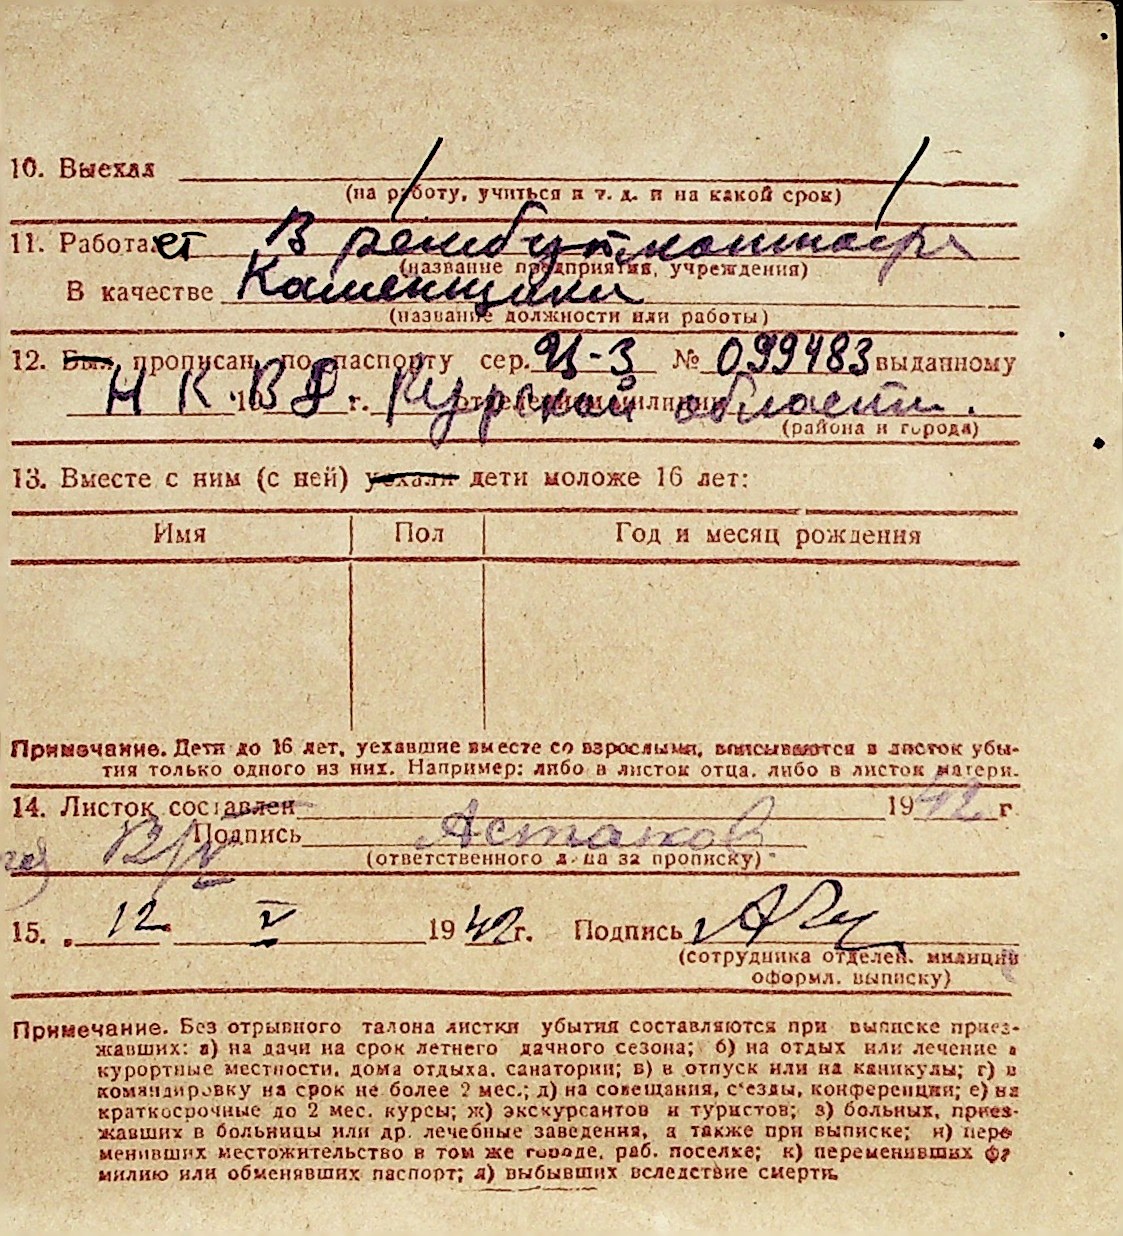 10. Выехал
(на работу, учиться и т. д. и на какой срок)
11. Работает В
(название предприятия, учреждения)
В качестве Каменщика
(название должности или работы)
12. Был прописан по паспорту сер. № 099483 выданному
НКВД г. Курской области.
(района и города)
13. Вместе с ним (с ней) уехали дети моложе 16 лет:
Имя Пол Год и месяц рождения
Примечание. Дети до 16 лет, уехавшие вместе со взрослыми, вписываются в листок убы-
тия только одного из них. Например: либо в листок отца, либо в листок матери.
14. Листок составлен 1942 г.
12/V Подпись Астахов
(ответственного лица за прописку)
15. 12 V 1942 г. Подпись
(сотрудника отделен. милиции
оформл. выписку)
Примечание. Без отрывного талона листки убытия составляются при выписке приез-
жавших: а) на дачи на срок летнего дачного сезона; б) на отдых или лечение в
курортные местности, дома отдыха, санатории; в) в отпуск или на каникулы; г) в
командировку на срок не более 2 мес.; д) на совещания, съезды, конференции; е) на
краткосрочные до 2 мес. курсы; ж) экскурсантов и туристов; з) больных, приез-
жавших в больницы или др. лечебные заведения, а также при выписке; и) пере
менивших местожительство в том же городе, раб. поселке; к) переменивших фа
милию или обменявших паспорт; л) выбывших вследствие смерти.